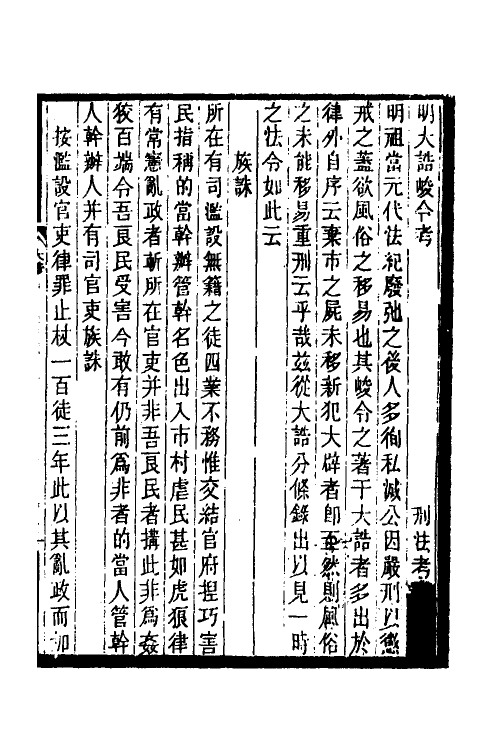 明大誥峻令考
刑法考
明祖當元代法紀廢弛之後人多徇私滅公因嚴刑以懲
戒之蓋欲風俗之移易也其峻令之著于大誥者多出於
律外自序云棄市之屍未移新犯大辟者卽至然則風俗
之未能移易重刑云乎哉茲從大誥分條錄出以見一時
之法令如此云
族誅
所在有司濫設無籍之徒四業不務惟交結官府捏巧害
民指稱的當幹辦管幹名色出入市村虐民甚如虎狼律
有常憲亂政者斬所在官吏并非吾良民者搆此非爲姦
狡百端令吾良民受害今敢有仍前爲非者的當人管幹
人幹辦人并有司官吏族誅
按濫設官吏律罪止杖一百徒三年此以其亂政而加